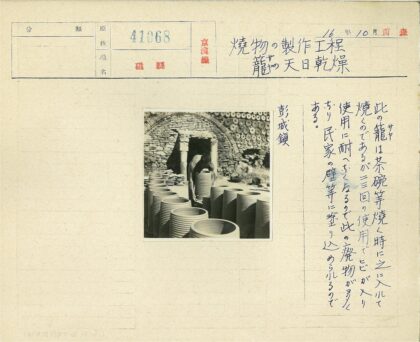 分類
原板順名
41068
職縣
京漢線
16年10月
燒物の製作工程
籠サヤの天日乾燥
此の籠サヤは茶碗等燒く時に之に入れて
燒くのであるが二三回の使用でヒビが入り
使用に耐へなくなるので此の廢物が多く
あり民家の壁等に塗り込められるので
ある。
彭城鎭